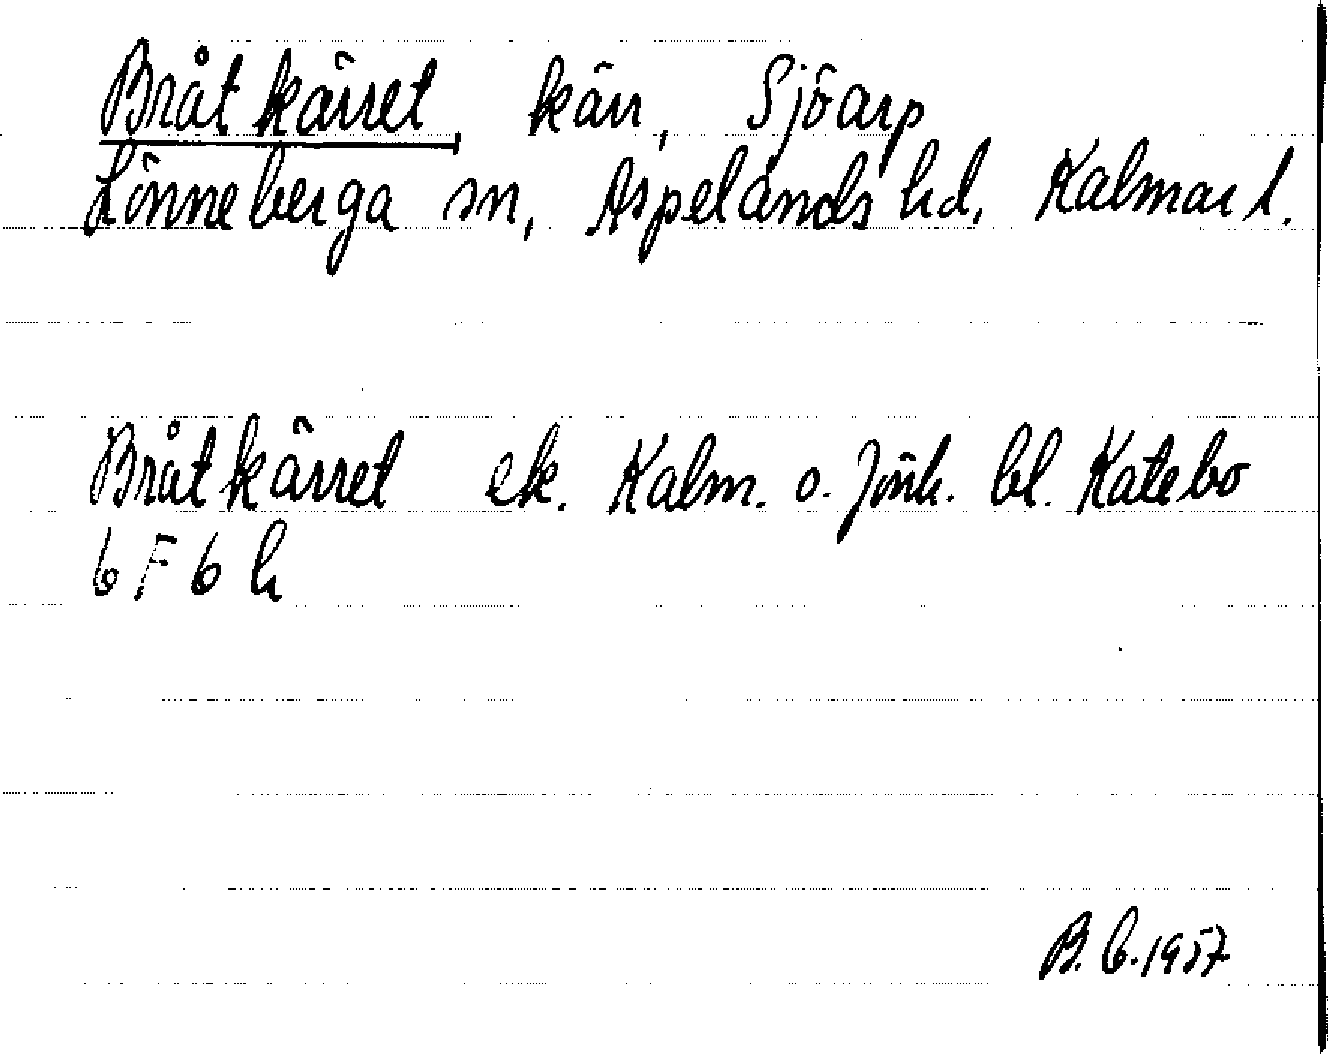 Bråtkärret, kärr, Sjöarp
Lönneberga sn, Aspelands hd, Kalmar l.
Bråtkärret ek. Kalm. o. Jönk. bl. Katebo
6 F 6 h
B. C. 1957